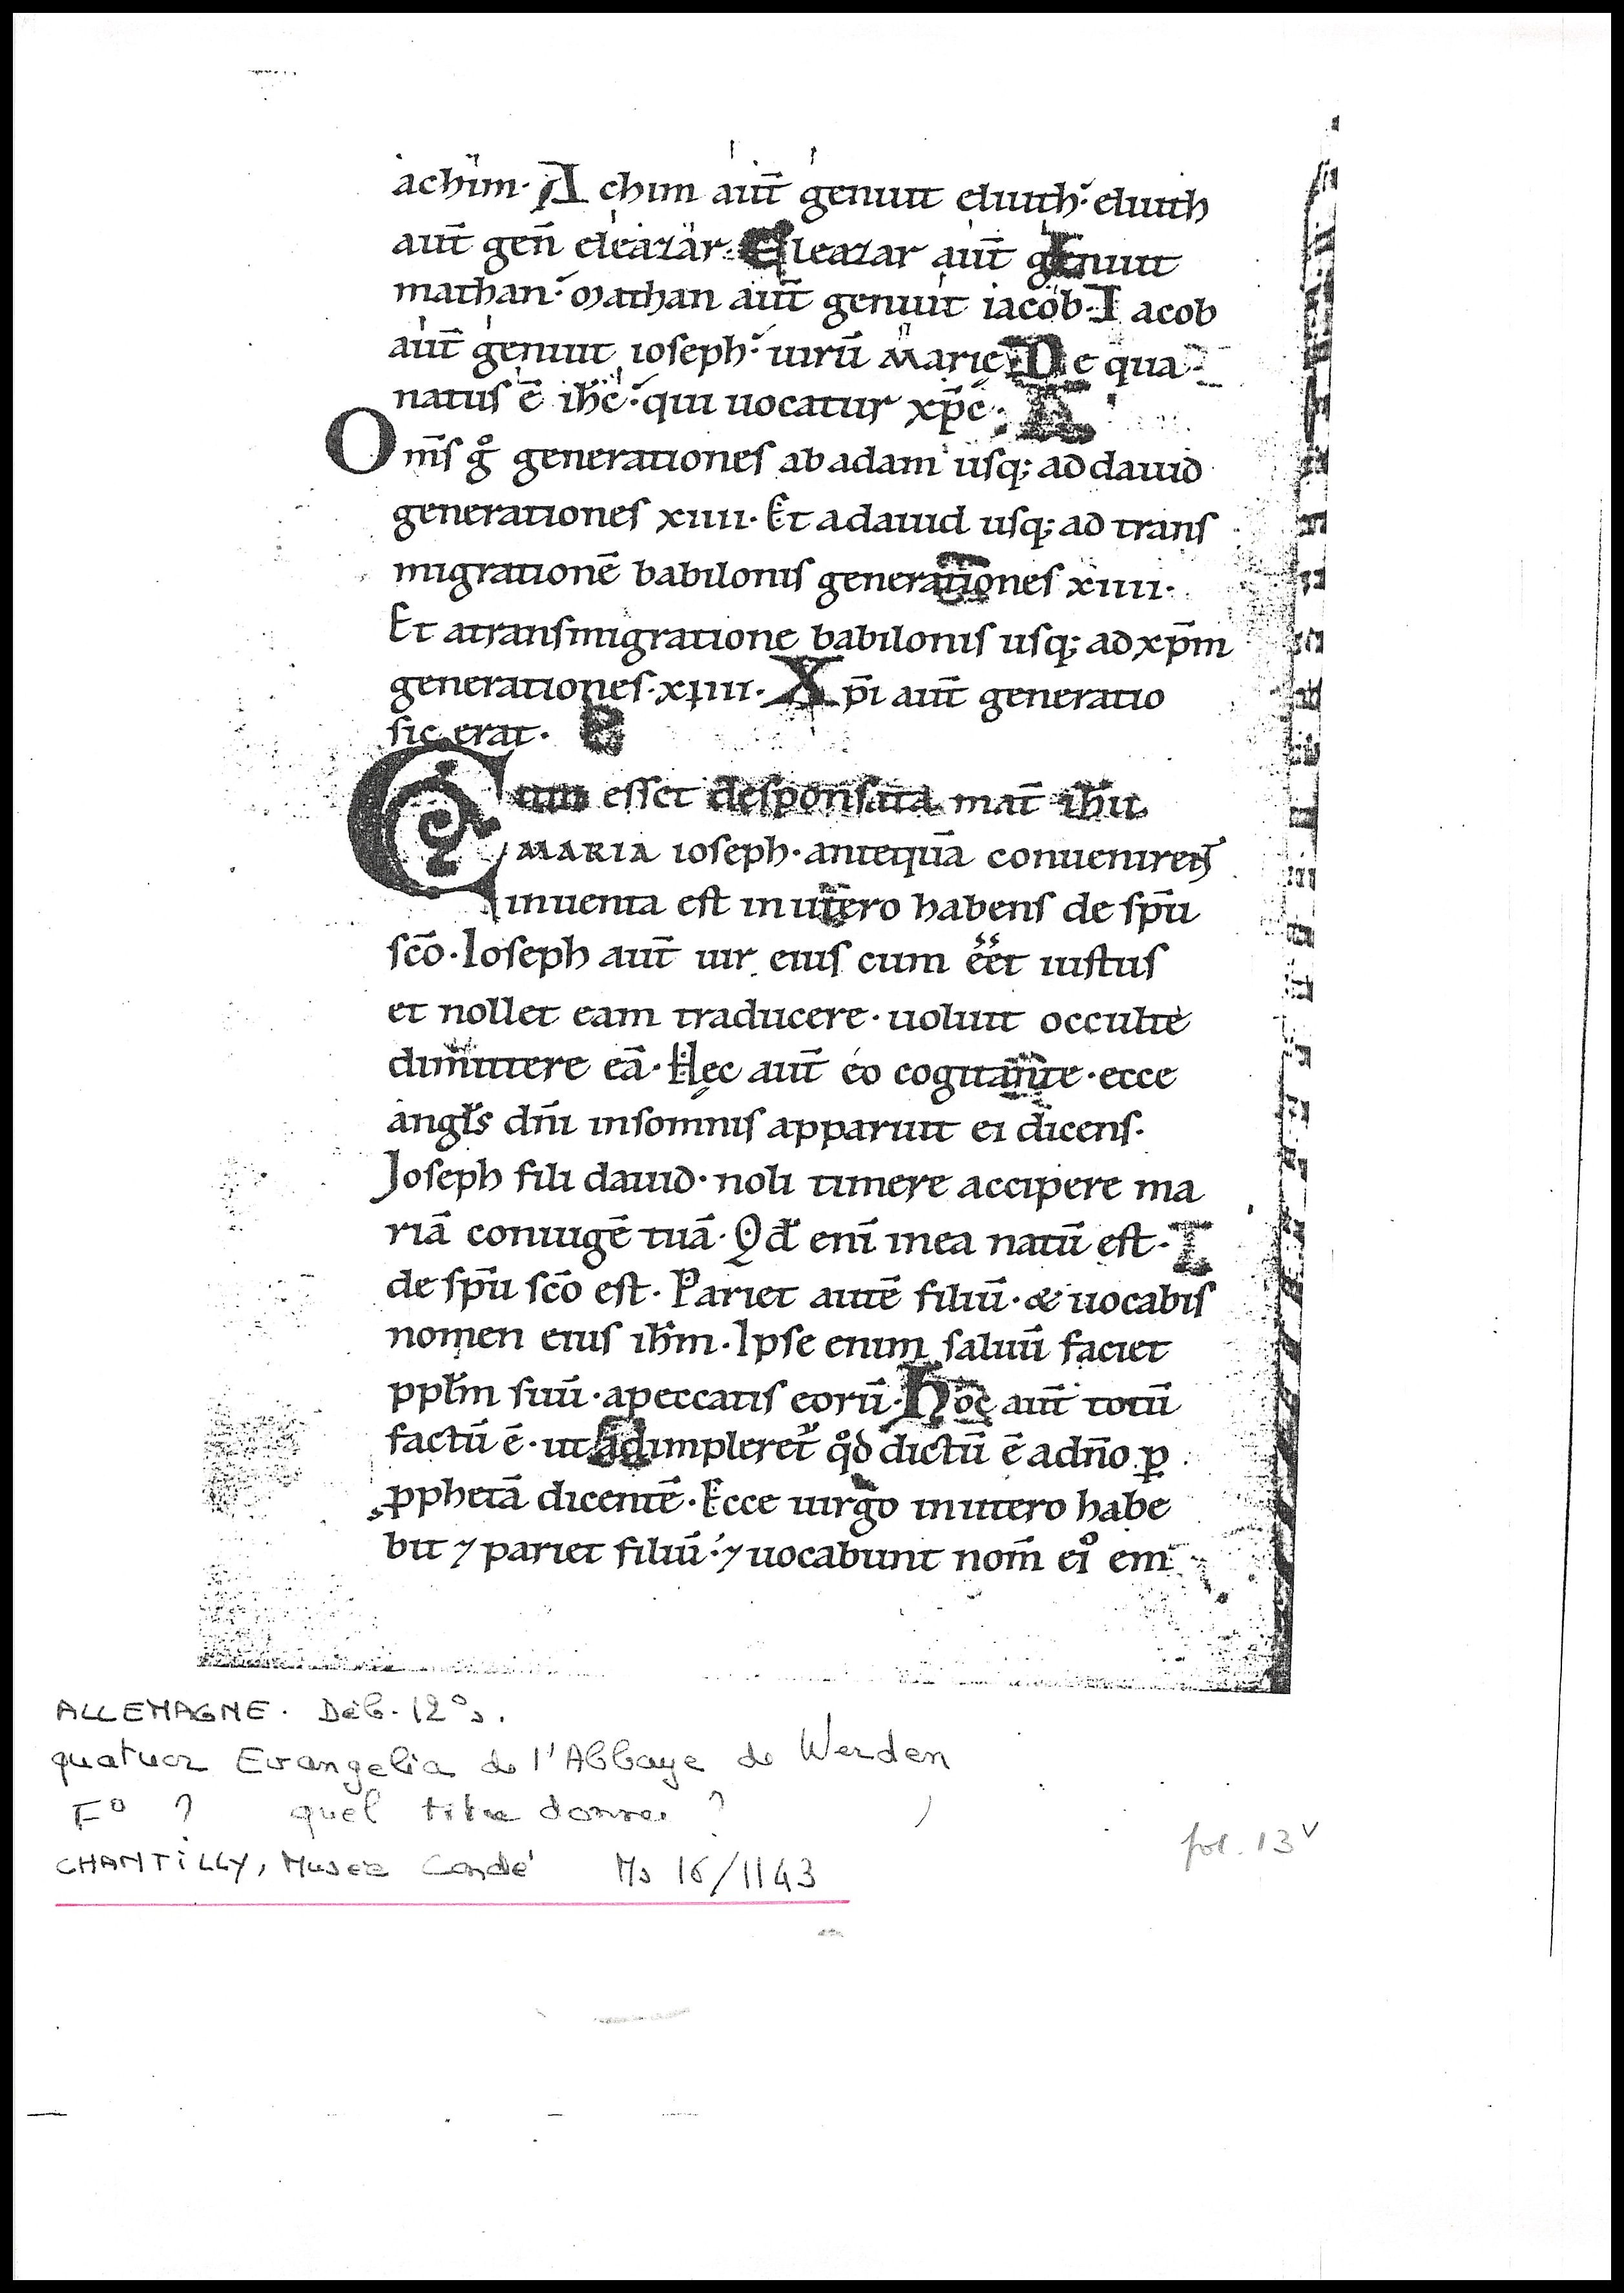 achim· Achim aut̄ genuit eliuth· eliuth
aut̄ gen̄ eleazar· Eleazar aut̄ genuit
mathan· Mathan aut̄ genuit iacob· Iacob
aut̄ genuit ioseph· uirū Marie De qua
natus ē ih̄c· qui uocatur xp̄c·
Om̄s gͦ generationes ab adam usq; ad dauid
generationes xiiii· Et adauid usq; ad trans
migrationē babilonis generationes xiiii·
Et atransmigratione babilonis usq; ad xp̄m
generationes·xiiii· Xp̄i aut̄ generatio
sic erat·
Cum esset desponsata mat̄ ih̄u
MARIA ioseph· antequā conuenirent
inuenta est in utero habens de sp̄u
sc̄o· Ioseph aut̄ uir eius cum eet iustus
et nollet eam traducere· uoluit occulte
dimittere eā· Hęc aut̄ eo cogitante· ecce
angl̄s dn̄i insomnis apparuit ei dicens·
Ioseph fili dauid· noli timere accipere ma
riā coniugē tuā· Qd̄ eni̅ inea natū est·
de sp̄u sc̄o est· Pariet autē filiū· & uocabis
nomen eius ih̄m· Ipse enim saluū faciet
ppl̄m suū· apeccatis eorū· Hoc aut̄ totū
factū ē· ut adimpleret᷑ qͦd dictū ē adn̄o ꝑ
ꝓphetā dicentē· Ecce uirgo inutero habe
bit ⁊ pariet filiū· ⁊ uocabunt nom̄ eiꝰ em
ALLEMAGNE. Déb. 12e s.
quatuor Evangelia de l'Abbaye de Werden
F° ? quel titre donner ?
fol. 13v
CHANTILLY, Musée Condé Ms 16/1143